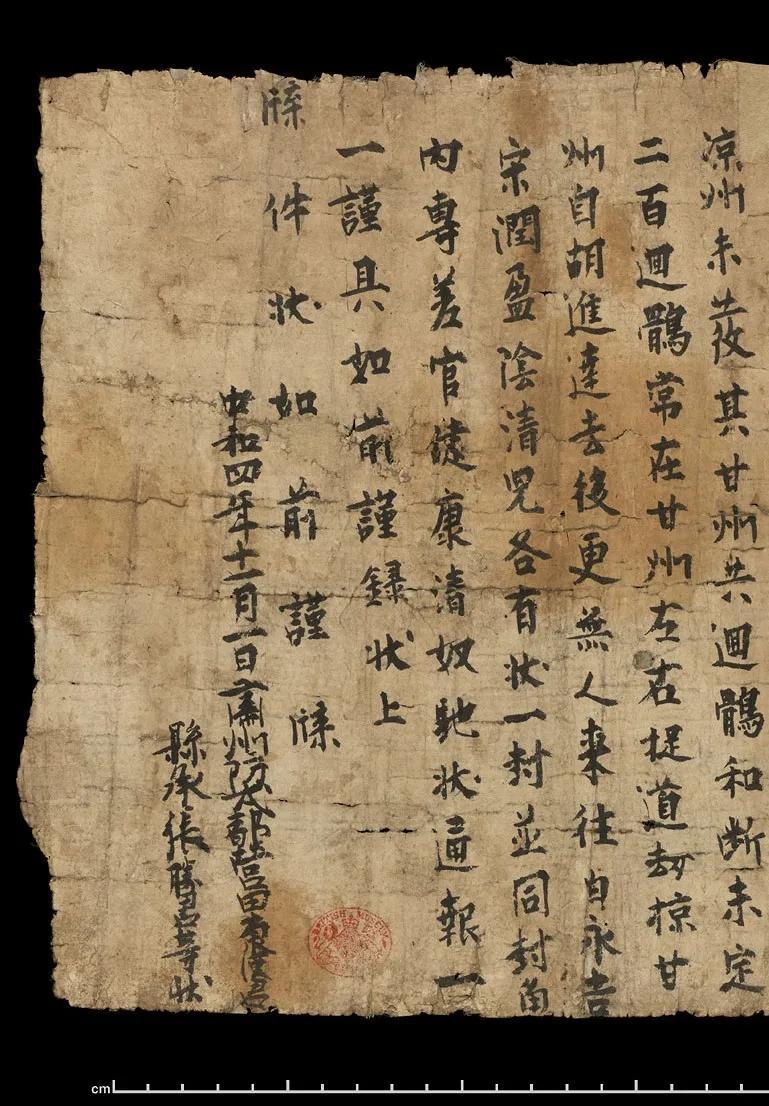 涼州未發其甘州共迴鶻和断未定
二百迴鶻常在甘州左右捉道劫掠甘
州自胡進達去後更無人來往白永吉
宋潤盈陰清兒各有状一封並同封角
内專差官健康清奴馳状通報一
一謹具如前謹録状上
牒件状如前謹牒
中和四年十一月一日肅州防戍都營田索漢君
縣丞張勝君等状
BRITISH MUSEUM
cm